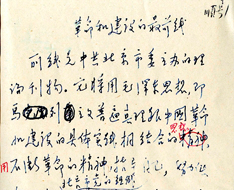 革命和建设的最前线
前线是中共北京市委主办的理
论刊物。它将用毛泽东思想，即
马 列 主义普遍真理和中国革命
和建设的具体实践相结合的思想
用不断革命的精神，
北京市党的组织